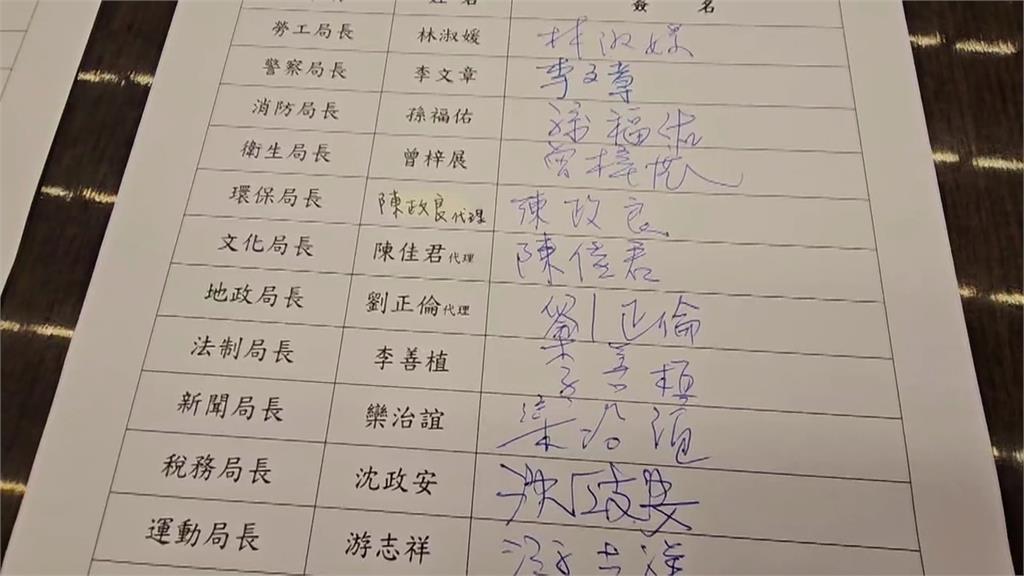 姓名 簽名
勞工局長 林淑媛 林淑媛
警察局長 李文章 李文章
消防局長 孫福佑 孫福佑
衛生局長 曾梓展 曾梓展
環保局長 陳政良代理 陳政良
文化局長 陳佳君代理 陳佳君
地政局長 劉正倫代理 劉正倫
法制局長 李善植 李善植
新聞局長 欒治誼 欒治誼
稅務局長 沈政安 沈政安
運動局長 游志祥 游志祥